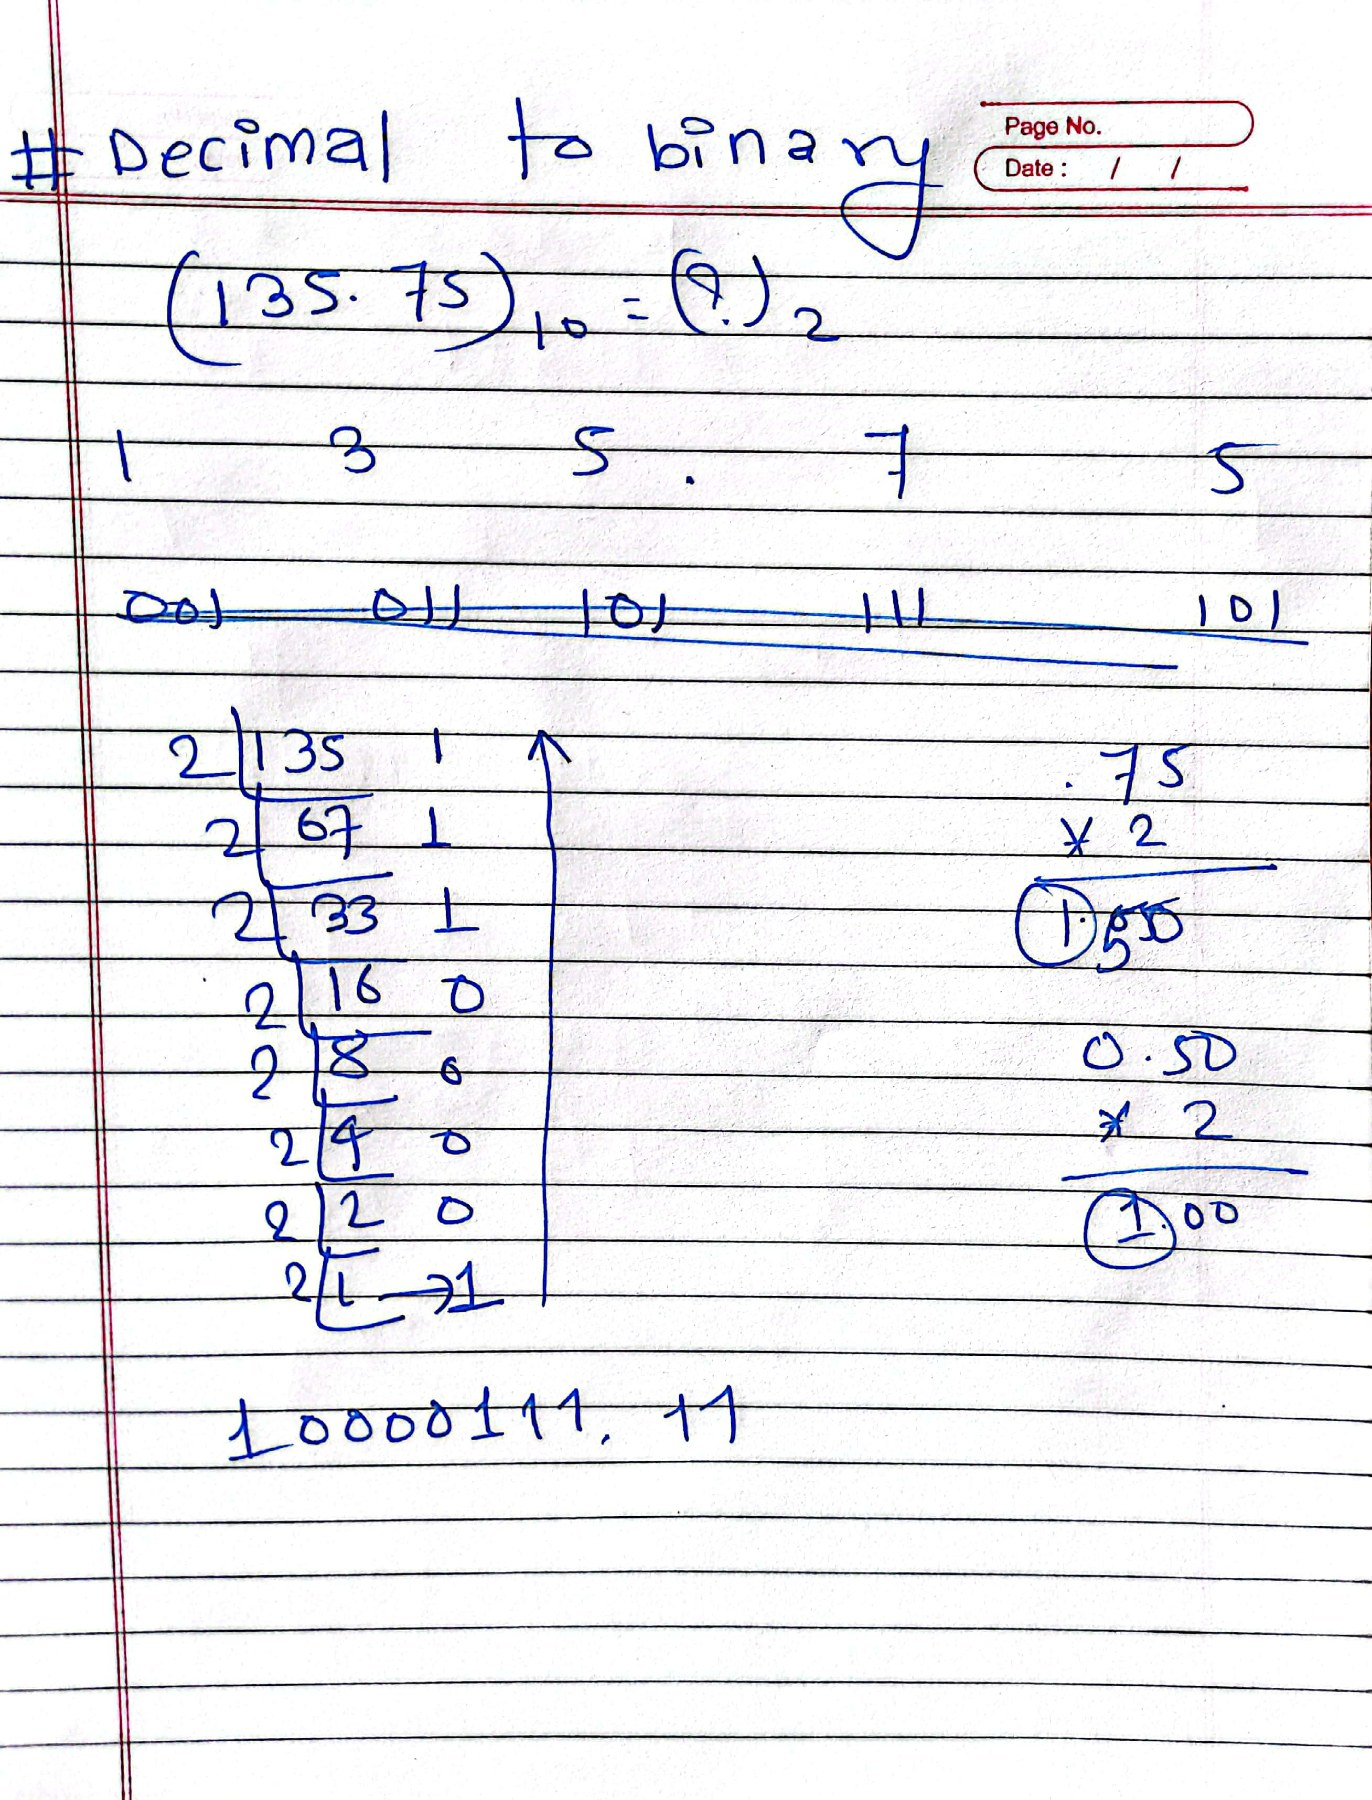 # Decimal to binary
Page No.
Date : / /
(135.75)10 = (?)2
1 3 5 . 7 5
001 011 101 111 101
2 135 1
2 67 1
2 33 1
2 16 0
2 8 0
2 4 0
2 2 0
2 1 → 1
.75
* 2
1.50
0.50
* 2
1.00
10000111.11